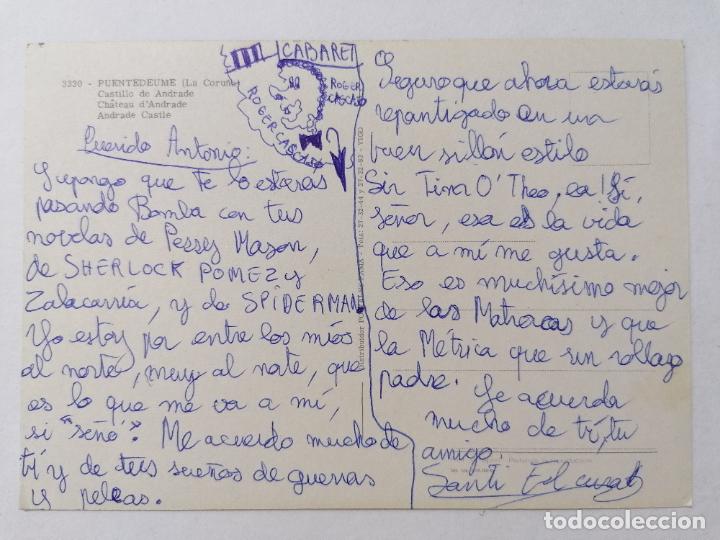 CABARET
ROGER CASCASO
ROGER
CASCASO
3330 - PUENTEDEUME (La Coruña)
Castillo de Andrade
Château d'Andrade
Andrade Castle
Querido Antonio:
Supongo que te lo estaras
pasando Bomba con tus
novelas de Pessy Mason,
de SHERLOCK POMEZ y
Zalacarría, y de SPIDERMAN
Yo estoy por entre los míos
al norte, muy al norte, que
es lo que me va a mí,
si "señó". Me acuerdo mucho de
tí y de tus sueños de guerras
y peleas.
Seguro que ahora estarás
repantigado en una
buen sillón estilo
Sir Tina O'Theo, ea! Sí,
señor, esa es la vida
que a mí me gusta.
Eso es muchísimo mejor
de las Matracas y que
la Métrica que sin rollazo
padre.
Se acuerda
mucho de tí, tu
amigo.
Santi
Distribuidor
Telfs. 27-32-44 y 27-22-92 - VIGO
todocoleccion
todocoleccion.net